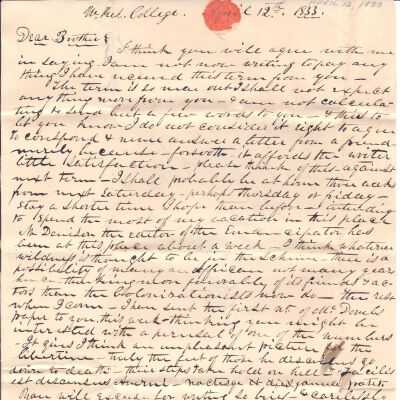 W. Res. College. April 12th. 1833.
Dear Brother
I think you will agree with me
in saying I am not now writing to pay any
thing I have received this term from you —
The term is so near out I shall not expect
anything more from you I am not calcula-
ting to send but a few words to you — this to
let you know I do not consider it right to agree
to correspond & never answer a letter from a friend
merely because forsooth it affords the writer
little satisfaction — please think of this against
next term — I shall probably be at home three weeks
from next Saturday perhaps Thursday or Friday —
stay a shorter time I hope than before — intending
to spend the most of my vacation in this place
Mr Denison the editor of the Emancipator has
been at this place about a week — I think whatever
wildness is thought to be in the scheme there is a
possibility of many an African not many years
hence thinking more favorably of its friends & ac-
tors than the Colonizationists now do — the rest
when I come I have sent the first no. of
paper to you this week thinking you might be
interested with a perusal of one of the numbers
It gives I think an unpleasant picture of the
libertine — truly the feet of those he discusses go
down to death — their steps take hold on hell —
est descensus Averni — noctes et dies janua
You will excuse for writing so brief & carelessly